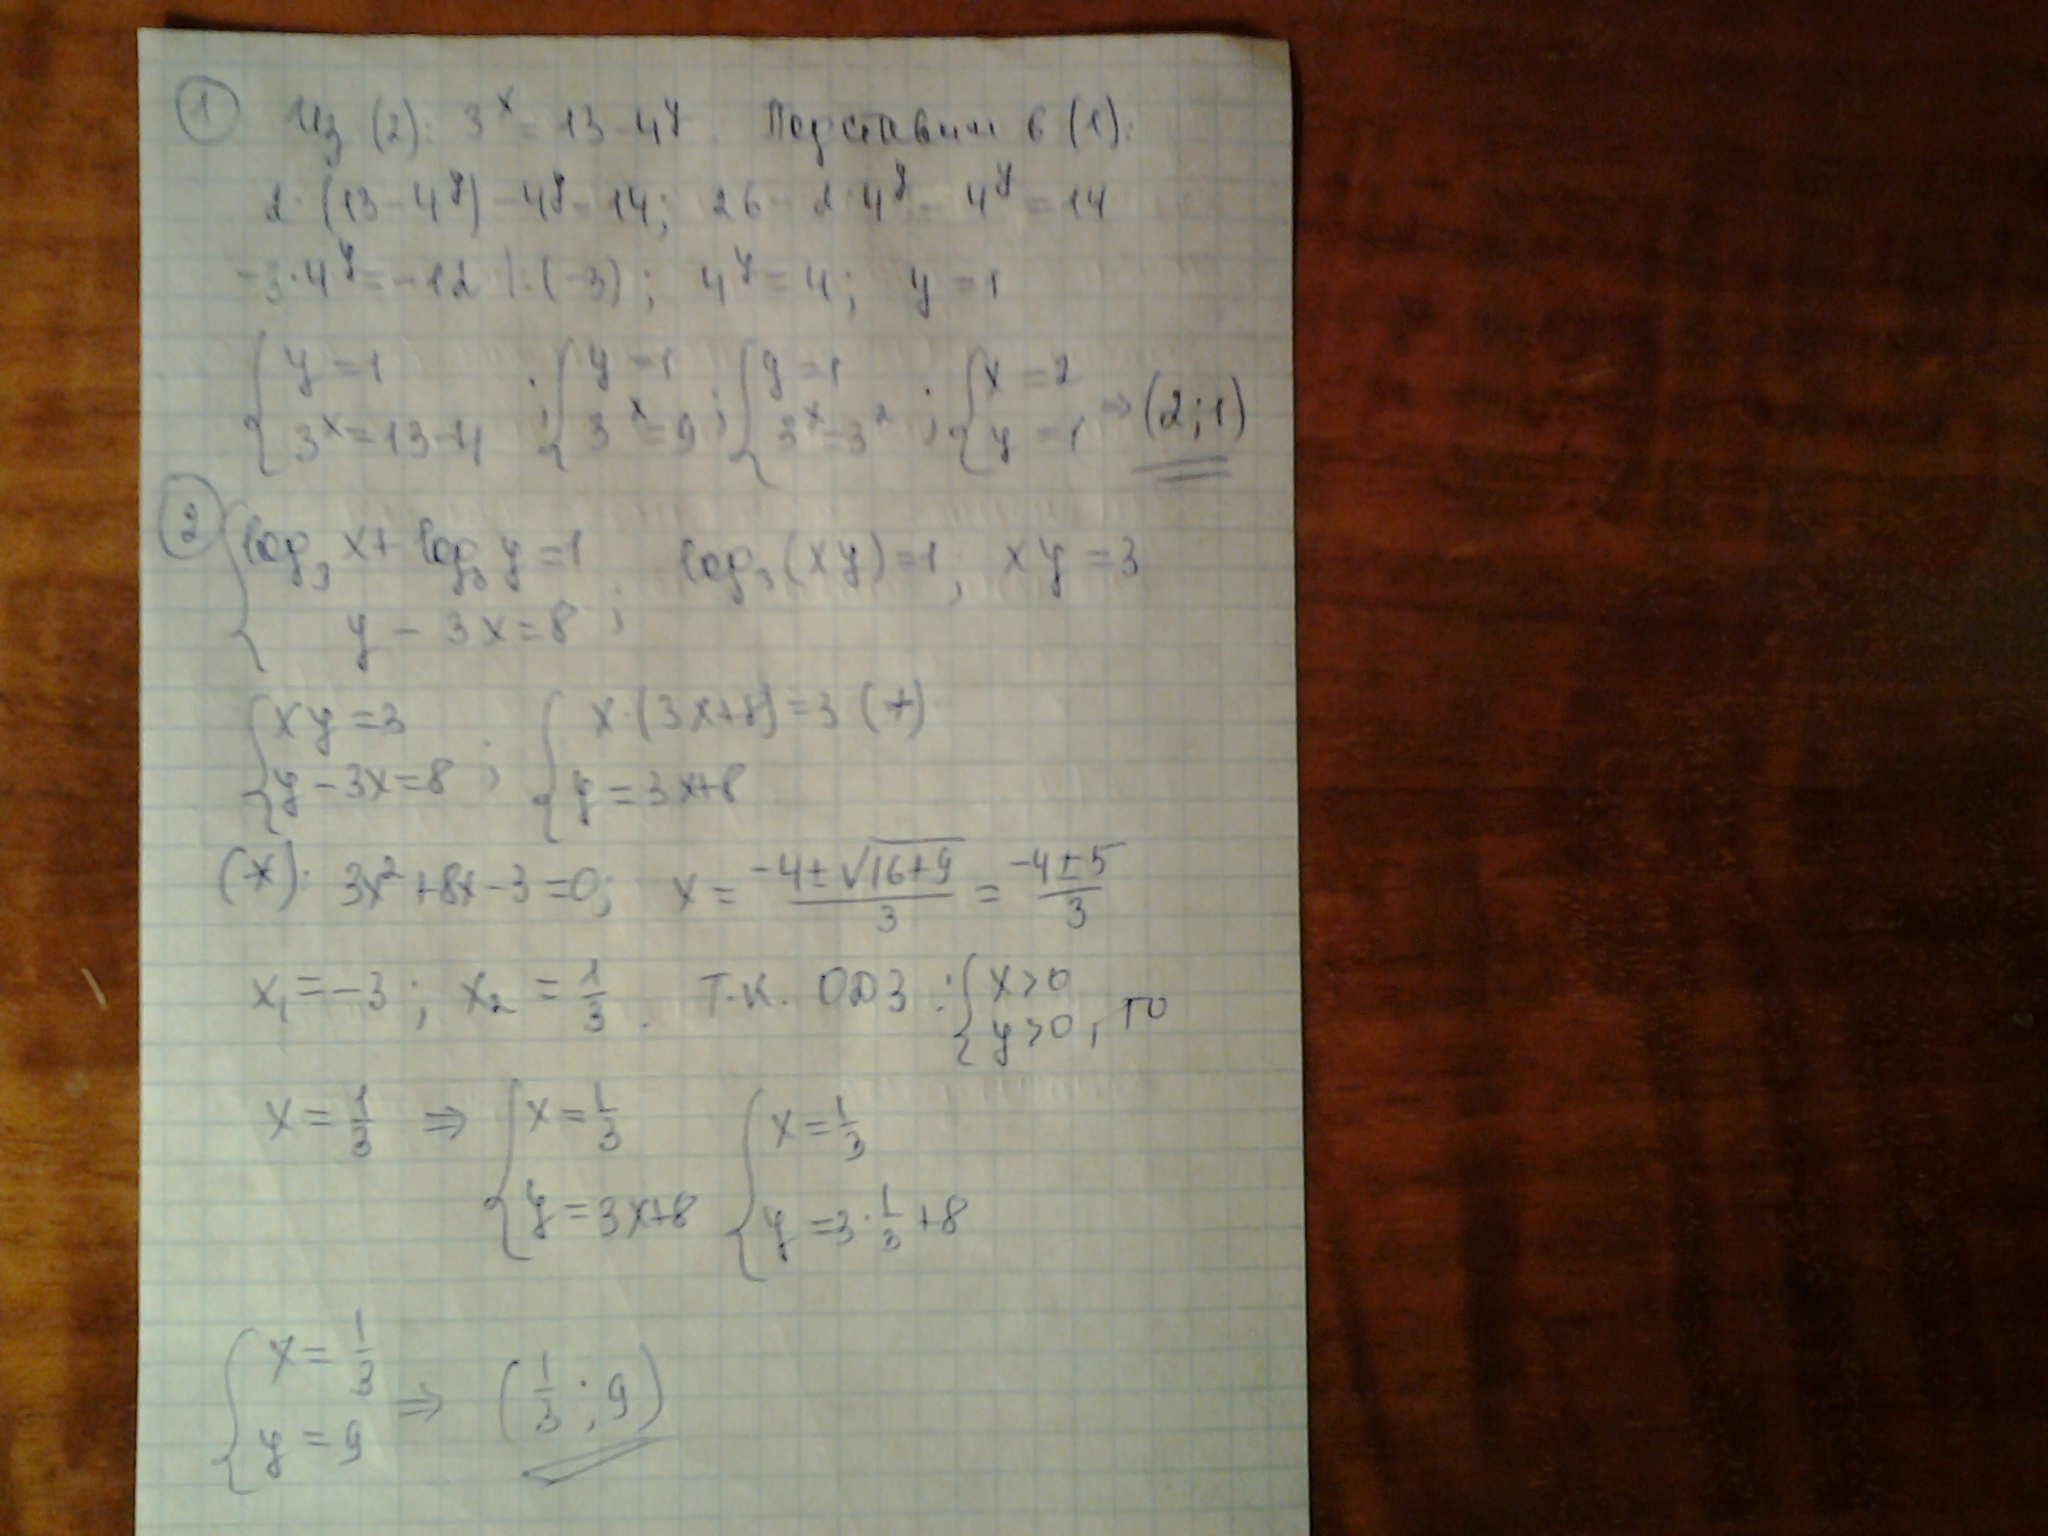 ① Из (2): 3^x = 13 - 4^y. Подставим в (1):
2·(13 - 4^y) - 4^y = 14; 26 - 2·4^y - 4^y = 14
-3·4^y = -12 |:(-3); 4^y = 4; y = 1
{ y = 1 ; { y = 1 ; { y = 1 ; { x = 2
3^x = 13 - 4 3^x = 9 3^x = 3^2 y = 1 ⇒ (2; 1)
② { log₃ x + log₃ y = 1 ; log₃ (xy) = 1; xy = 3
y - 3x = 8 ;
{ xy = 3 ; { x·(3x+8) = 3 (*)
y - 3x = 8 y = 3x+8
(*): 3x² + 8x - 3 = 0; x = (-4 ± √(16+9))/3 = (-4 ± 5)/3
x₁ = -3; x₂ = 1/3. Т.к. ОДЗ: { x > 0
y > 0, то
x = 1/3 ⇒ { x = 1/3 { x = 1/3
y = 3x+8 y = 3·1/3 + 8
{ x = 1/3
y = 9 ⇒ (1/3; 9)